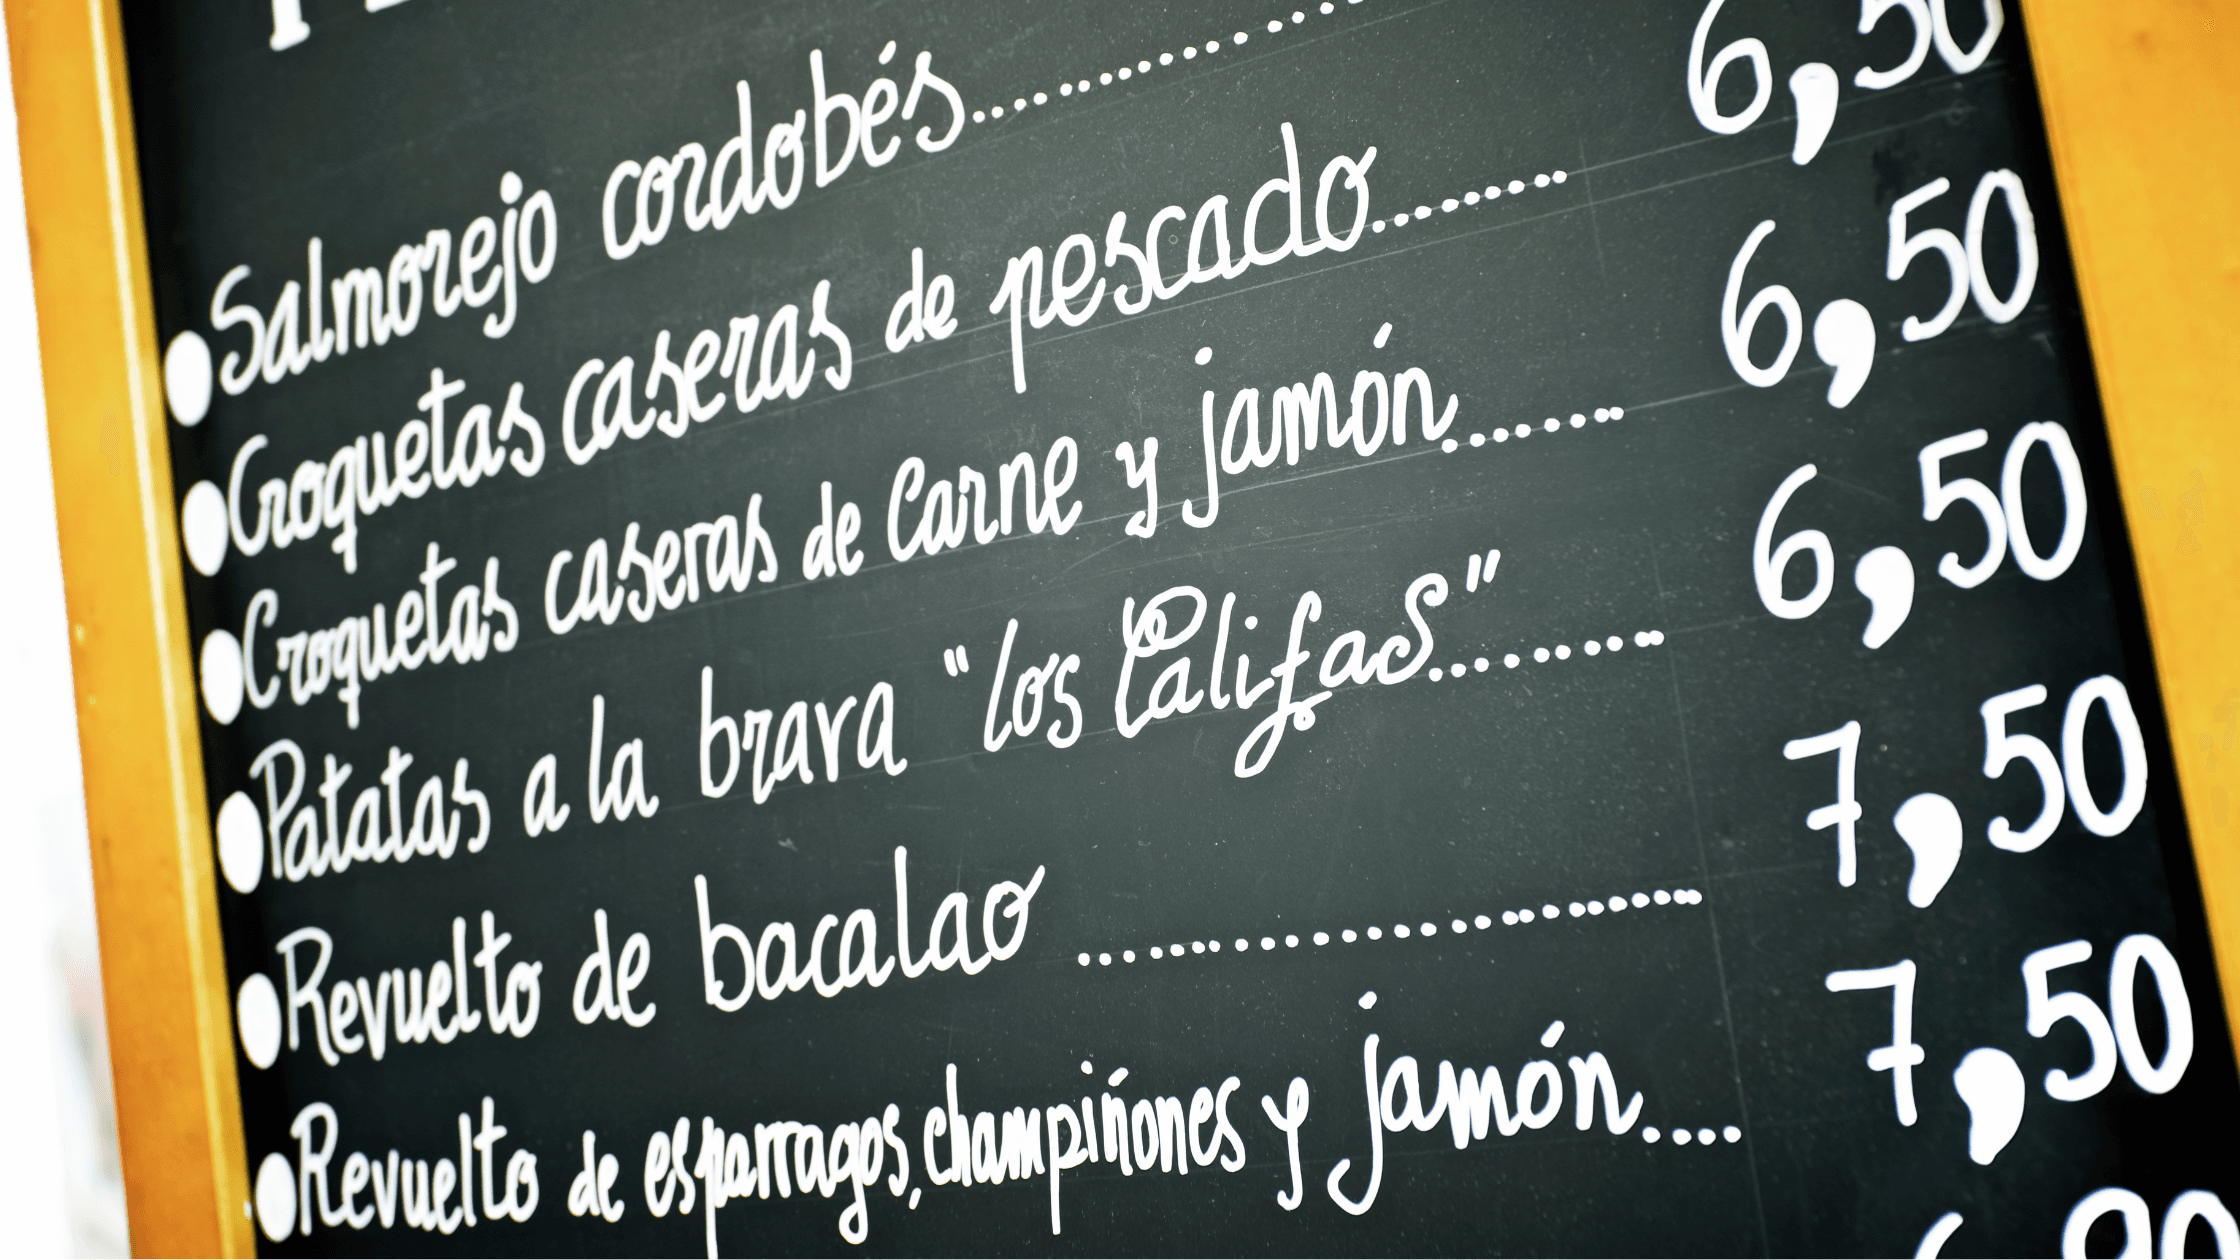 •Salmorejo cordobés....................
•Croquetas caseras de pescado.......... 6,50
•Croquetas caseras de Carne y jamón........ 6,50
•Patatas a la brava "los Califas".......... 6,50
•Revuelto de bacalao ........................ 7,50
•Revuelto de esparragos, champiñones y jamón.... 7,50